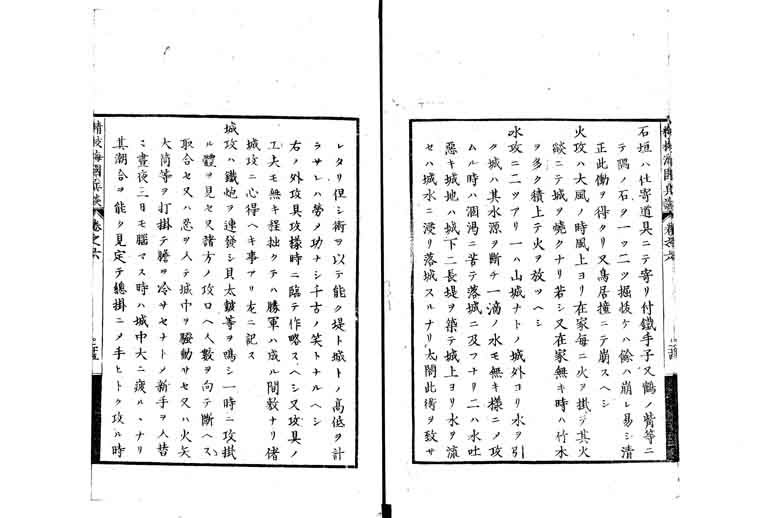 石垣ハ仕寄道具ニテ寄リ付鐵手子又鶴ノ觜等ニ
テ隅ノ石ヲ一ッ二ッ掘抜ケハ餘ハ崩レ易シ清
正此働ヲ得タリ又鳥居撞ニテ崩スヘシ
火攻ハ大風ノ時風上ヨリ在家毎ニ火ヲ掛テ其火
燄ニテ城ヲ燒クナリ若シ又在家無キ時ハ竹木
ヲ多ク積上テ火ヲ放ツヘシ
水攻ニ二ツアリ一ハ山城ナトノ城外ヨリ水ヲ引
ク城ハ其水源ヲ断チ一滴ノ水モ無キ様ニノ攻
ムル時ハ涸渇ニ苦テ落城ニ及フナリ二ハ水吐
惡キ城地ハ城下ニ長堤ヲ築テ城上ヨリ水ヲ流
セハ城水ニ浸リ落城スルナリ太閤此術ヲ致サ
レタリ但シ術ヲ以テ能ク堤ト城トノ高低ヲ計
ラサレハ勞ノ功ナシ千古ノ笑トナルヘシ
右ノ外攻具攻様時ニ臨テ作略スヘシ又攻具ノ
工夫モ無キ程拙クテハ勝軍ハ成ル間敷ナリ偖
城攻ニ心得ヘキ事アリ左ニ記ス
城攻ハ鐵炮ヲ連發シ貝太鼓等ヲ鳴シ一時ニ攻掛
ル體ヲ見セ又諸方ノ攻口ヘ人數ヲ向テ斷ヘス
取合セ又ハ忍ヲ入テ城中ヲ騒動サセ又ハ火矢
大筒等ヲ打掛テ膽ヲ冷サセナトノ新手ヲ入替
ミ晝夜三日モ腦マス時ハ城中大ニ疲ルヽナリ
其潮合ヲ能ク見定テ總掛ニメ手ヒトク攻ル時
精校海國兵談 卷之六